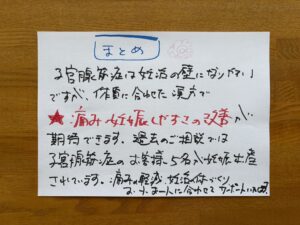 まとめ
子宮腺筋症は妊活の壁になりやすい
ですが、体質に合わせた漢方で
★痛み・妊娠しやすさの改善が
期待できます。過去のご相談では
子宮腺筋症のお客様、5名が妊娠出産
されています。痛みの軽減、妊活の体づくり
お一人お一人に合わせてサポートいたします。